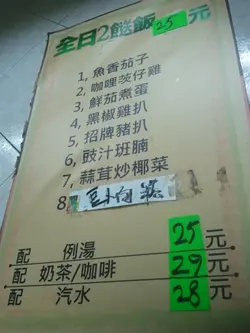 全日2餸飯 25 元
1, 魚香茄子
2, 咖哩茨仔雞
3, 鮮茄煮蛋
4, 黑椒雞扒
5, 招牌豬扒
6, 豉汁班腩
7, 蒜茸炒椰菜
8
配 例湯 25元
配 奶茶/咖啡 29元
配 汽水 28元